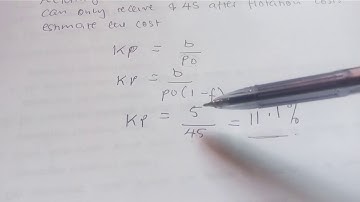 can only receive $ 45 after flotation cost
estimate the cost
Kp = D
Po
Kp = D
Po(1-f)
Kp = 5 = 11.1%
45